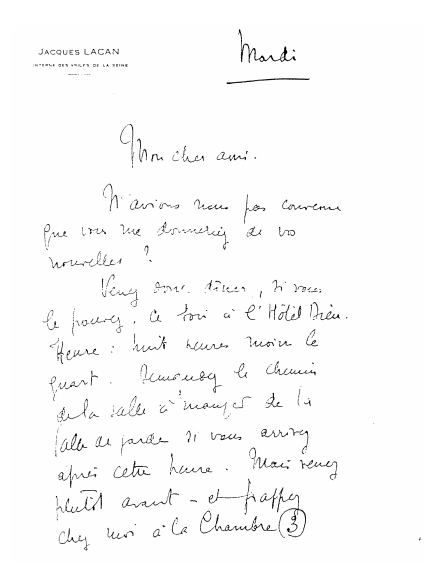 JACQUES LACAN
INTERNE DES ASILES DE LA SEINE
Mardi
Mon cher ami.
N'avions nous pas convenu
que vous me donneriez de vos
nouvelles ?
Venez donc dîner, si vous
le pouvez, ce soir à l'Hôtel Dieu.
Heure : huit heures moins le
quart. Demandez le chemin
de la salle à manger de la
salle de garde si vous arrivez
après cette heure. Mais venez
plutôt avant – et frappez
chez moi à la Chambre 3